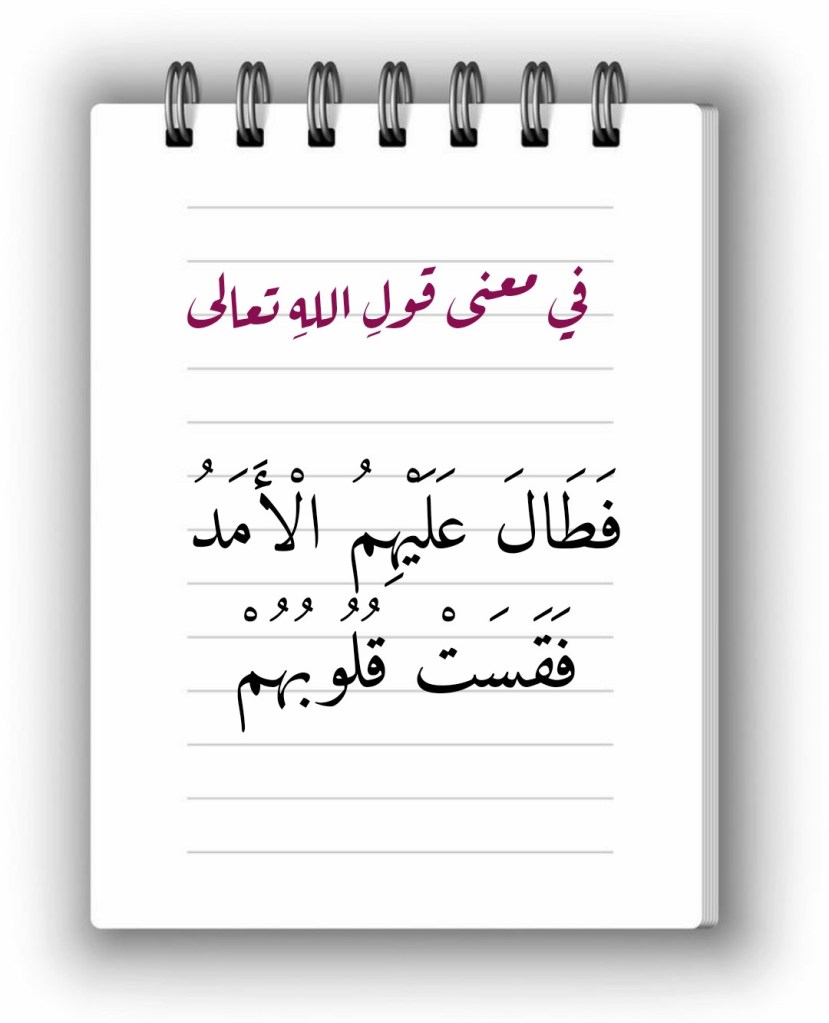 في معنى قولِ اللهِ تعالى
فَطَالَ عَلَيْهِمُ الْأَمَدُ
فَقَسَتْ قُلُوبُهُمْ